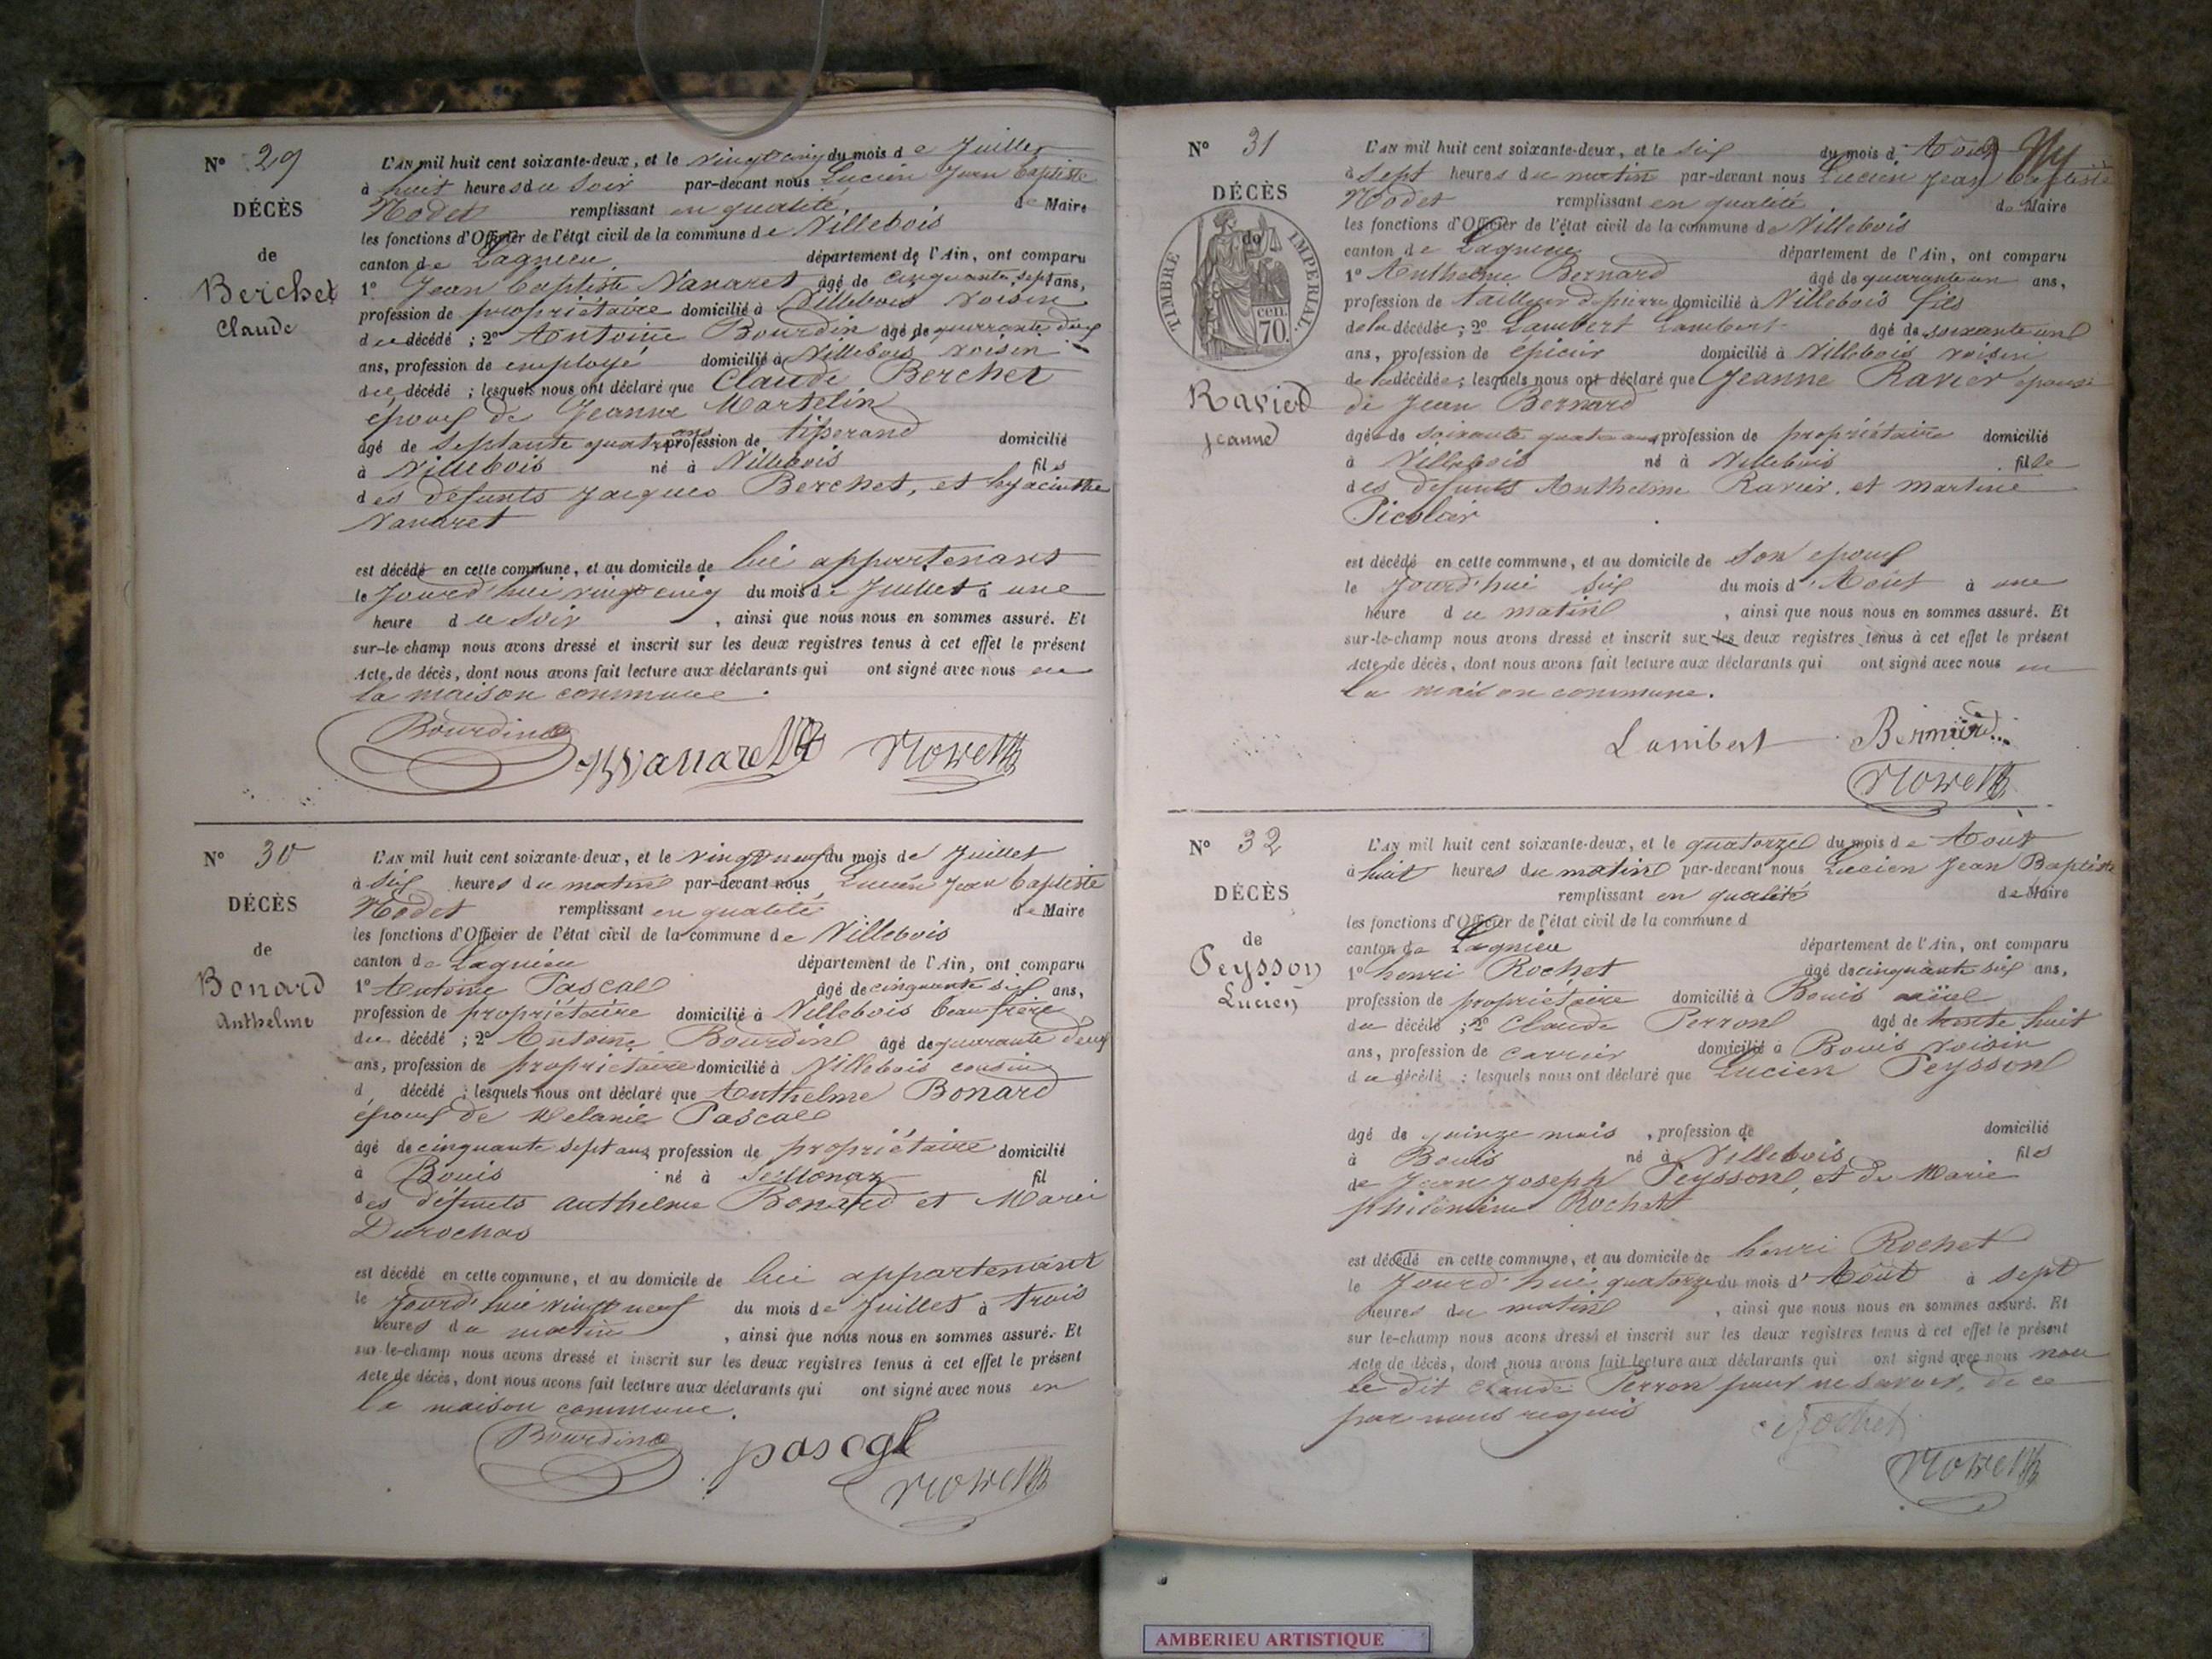 N° 29
DÉCÈS
de
Berchet
Claude
L'AN mil huit cent soixante-deux, et le vingt cinq du mois de Juillet
à huit heures du soir par-devant nous Lucien Jean Baptiste
Nodet remplissant en qualité de Maire
les fonctions d'Officier de l'état civil de la commune de Villebois
canton de Lagnieu département de l'Ain, ont comparu
1° Jean Baptiste Navaret âgé de cinquante sept ans,
profession de propriétaire domicilié à Villebois voisin
du décédé ; 2° Antoine Bourdin âgé de quarrante deux
ans, profession de employé domicilié à Villebois voisin
du décédé ; lesquels nous ont déclaré que Claude Berchet
époux de Jeanne Martelin
âgé de septante quatre ans profession de tiserand domicilié
à Villebois né à Villebois fils
des défunts Jacques Berchet, et hyacinthe
Navaret
est décédé en cette commune, et au domicile de lui appartenant
le Jourd'hui vingt cinq du mois de Juillet à une
heure du soir , ainsi que nous nous en sommes assuré. Et
sur-le-champ nous avons dressé et inscrit sur les deux registres tenus à cet effet le présent
Acte de décès, dont nous avons fait lecture aux déclarants qui ont signé avec nous en
la maison commune.
Bourdin
N° 30
DÉCÈS
de
Bonard
Anthelme
L'AN mil huit cent soixante-deux, et le vingt neuf du mois de Juillet
à six heures du matin par-devant nous Lucien Jean Baptiste
Nodet remplissant en qualité de Maire
les fonctions d'Officier de l'état civil de la commune de Villebois
canton de Lagnieu département de l'Ain, ont comparu
1° Antoine Pascal âgé de cinquante six ans,
profession de propriétaire domicilié à Villebois beau frère
du décédé ; 2° Antoine Bourdin âgé de quarante deux
ans, profession de propriétaire domicilié à Villebois cousin
d décédé ; lesquels nous ont déclaré que Anthelme Bonard
époux de Melanie Pascal
âgé de cinquante sept ans profession de propriétaire domicilié
à Bouis né à fil
des défunts Anthelme Bonard et Marie
Durochas
est décédé en cette commune, et au domicile de lui appartenant
le Jourd'hui vingt neuf du mois de Juillet à trois
heures du matin , ainsi que nous nous en sommes assuré. Et
sur-le-champ nous avons dressé et inscrit sur les deux registres tenus à cet effet le présent
Acte de décès, dont nous avons fait lecture aux déclarants qui ont signé avec nous en
la maison commune.
Bourdin pascal
N° 31
DÉCÈS
de
TIMBRE IMPERIAL.
70 cen.
Ravier
Jeanne
L'AN mil huit cent soixante-deux, et le six du mois d'Août
à sept heures du matin par-devant nous Lucien Jean Baptiste
Nodet remplissant en qualité de Maire
les fonctions d'Officier de l'état civil de la commune de Villebois
canton de Lagnieu département de l'Ain, ont comparu
1° Anthelme Bernard âgé de quarante un ans,
profession de tailleur de pierre domicilié à Villebois fils
de la décédée ; 2° Lambert Lambert âgé de soixante un
ans, profession de épicier domicilié à Villebois voisin
de la décédée ; lesquels nous ont déclaré que Jeanne Ravier épouse
de Jean Bernard
âgée de soixante quatre ans profession de propriétaire domicilié
à Villebois né à Villebois fille
des défunts Anthelme Ravier, et Martine
Picolier
est décédé en cette commune, et au domicile de son epoux
le Jourd'hui six du mois d'Août à une
heure du matin , ainsi que nous nous en sommes assuré. Et
sur-le-champ nous avons dressé et inscrit sur les deux registres tenus à cet effet le présent
Acte de décès, dont nous avons fait lecture aux déclarants qui ont signé avec nous en
la maison commune.
Lambert Bernard
N° 32
DÉCÈS
de
Peysson
Lucien
L'AN mil huit cent soixante-deux, et le quatorze du mois de Août
à huit heures du matin par-devant nous Lucien Jean Baptiste
remplissant en qualité de Maire
les fonctions d'Officier de l'état civil de la commune d
canton de Lagnieu département de l'Ain, ont comparu
1° henri Rochet âgé de cinquante six ans,
profession de propriétaire domicilié à Bouis aïeul
du décédé ; 2° Claude Perron âgé de trente huit
ans, profession de carrier domicilié à Bouis voisin
du décédé ; lesquels nous ont déclaré que Lucien Peysson
âgé de quinze mois , profession de domicilié
à Bouis né à Villebois fils
de Jean Joseph Peysson, et de Marie
philomène Rochet
est décédé en cette commune, et au domicile de henri Rochet
le Jourd'hui quatorze du mois d'Août à sept
heures du matin , ainsi que nous nous en sommes assuré. Et
sur le-champ nous avons dressé et inscrit sur les deux registres tenus à cet effet le présent
Acte de décès, dont nous avons fait lecture aux déclarants qui ont signé avec nous non
le dit Claude Perron pour ne savoir, de ce
par nous requis
Rochet
AMBERIEU ARTISTIQUE